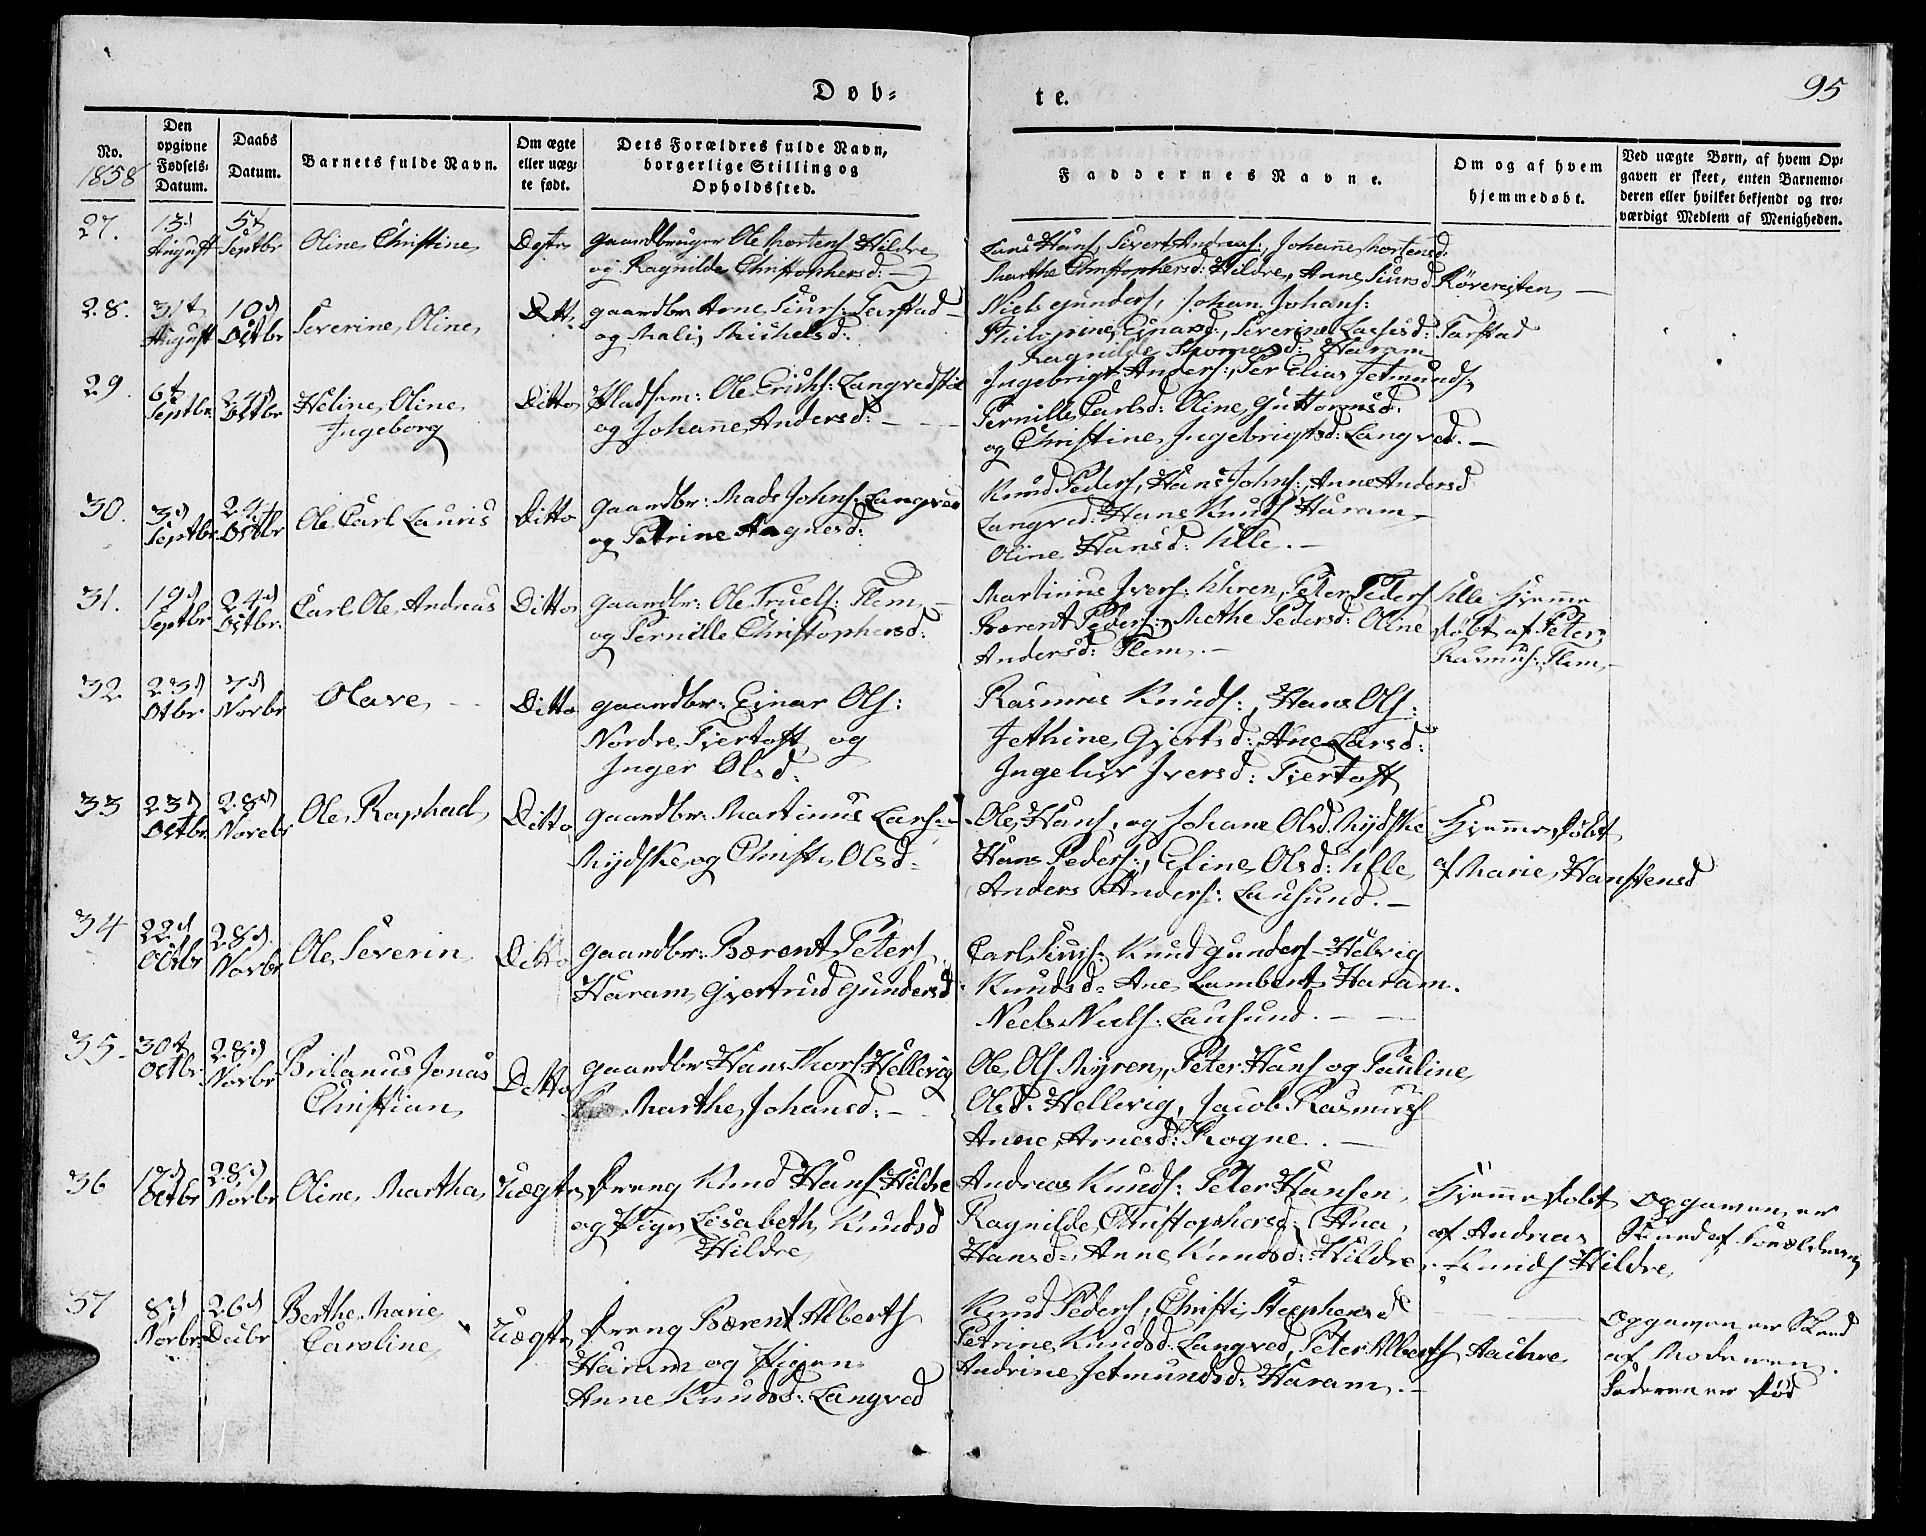 Døb-
te.
95
No.
1858
Den
opgivne
Fødsels-
Datum.
Daabs
Datum.
Barnets fulde Navn.
Om ægte
eller uæg-
te født.
Dets Forældres fulde Navn,
borgerlige Stilling og
Opholdssted.
Faddernes Navne.
Om og af hvem
hjemmedøbt.
Ved uægte Børn, af hvem Op-
gaven er skeet, enten Barnemo-
deren eller hvilket bekjendt og tro-
værdigt Medlem af Menigheden.
27.
13d
August
5t
Septbr
Oline Christine
gaardbruger Ole Mortens Hildre
og Ragnilde Christophersd: —
Lars Hans, Sivert Andreas, Johanne Mortensd:
Marthe Christophersd: Hildre, Anne Siursd Røveristen —
28.
31t
August
10d
Octbr
Severine Oline
Ditto
gaardbr Arne Siurs: Farstad —
og Mali Michelsd:
Niels Gunders, Johan Johans:
Einarsd:, Severine Lassesd: Farstad
Ragnilde Thomasd: Haram
29
6t
Septbr
24d
Octbr
Heline Oline
Ingeborg
Ditto
Pladsm: Ole Erichs: Langved
og Johanne Andersd: —
Ingebrigt Anders:, Per Elias Jetmunds
Pernille Carlsd: Oline Guttormsd:
og Christine Ingebrigtsd: Langved. —
30.
3d
Septbr
24t
Octbr
Ole Carl Lauris
Ditto
gaardbr: Mads Johns: Langved
og Petrine Magnesd:
Knud Peders, Hans Johns:, Anne Andersd
Langved: Hans Knuds Haram
Oline Hansd: Ulle. —
31.
19d
Septbr
24d
Octbr.
Carl Ole Andreas
Ditto
gaardbr: Ole Truels: Flem —
og Pernille Christophersd:
Martinus Ivers: Uhren, Peter Peders Ulle
Bærent Peders:, Methe Pedersd: Oline
Andersd: Flem. —
Hjemme
døbt af Peter
Rasmus: Flem
32
23d
Otbr
7d
Norbr
Olave —
Ditto
gaardbr: Einar Ols:
Nordre Fjertoft og
Inger Olsd:
Rasmus Knuds:, Hans Ols:
Jethine Gjertsd: Ane Larsd:
Ingeliv Iversd: Fjertoft
33
23d
Octbr
28d
Novbr
Ole Raphael
Ditto
gaardbr: Martinus Lars:
Mydske og Christi Olsd:
Ole Hans, og Johane Olsd: Mydske
Hans Peders:, Eline Olsd: Ulle
Anders Anders: Lausund. —
Hjemmedøbt
af Marie Hanstensd
34
22d
Octbr
28d
Novbr
Ole Severin
Ditto
gaardbr: Bærent Peters
Haram, Gjertrud Gundersd
Carl Siurs: Knud Gunders — Helvig
Knudsd: Ane Lamberts Haram.
Neels Neels: Lausund. —
35.
30t
Octbr
28d
Novbr
Jonas
Christian
Ditto
gaardbr Hans Thors Hellevig
Marthe Johansd: —
Ole Ols Myren, Peter Hans og Pauline
Olsd: Hellevig, Jacob Rasmus
Anne Arnesd: Rogne. —
36
17d
Octbr
28d
Novbr
Oline Martha
Uægte
Dreng Knud Hans Hildre
og Pigen Lisabeth Knudsd
Hildre
Andreas Knuds: Peter Hansen
Ragnilde Christophersd: Ana
Hansd:, Anne Knudsd: Hildre
Hjemmedøbt
af Andreas
Knuds Hildre
Opgaven er
Skeed af Forældrene
37
8d
Novbr
26d
Decbr
Berthe Marie
Caroline
Uægte
Dreng Bærent Alberts
Haram og Pigen
Anne Knudsd: Langved
Knud Peders, Christi Stephensd
Petrine Knudsd: Langved, Peter Alberts Aachre
Andrine Jetmundsd: Haram. —
Opgaven er Skeed
af Moderen.
Faderen er død